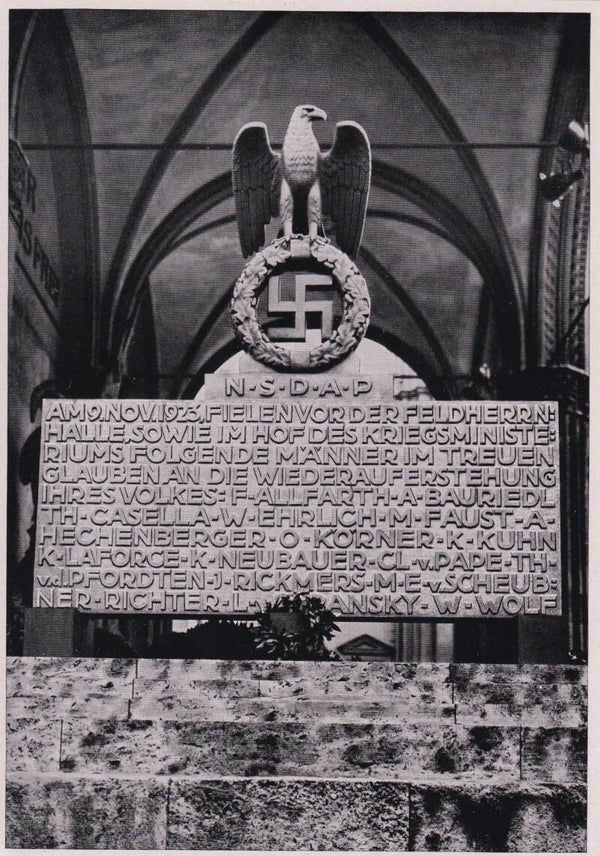 N·S·D·A·P
AM 9. NOV. 1923. FIELEN VOR DER FELDHERRN:
HALLE, SOWIE IM HOF DES KRIEGSMINISTE:
RIUMS FOLGENDE MÄNNER IM TREUEN
GLAUBEN AN DIE WIEDERAUFERSTEHUNG
IHRES VOLKES: F·ALLFARTH·A·BAURIEDL
TH·CASELLA·W·EHRLICH·M·FAUST·A·
HECHENBERGER·O·KÖRNER·K·KUHN
K·LAFORCE·K·NEUBAUER·CL·v.PAPE·TH·
v.d.PFORDTEN·J·RICKMERS·M·E·v.SCHEUB:
NER·RICHTER·L· W·WOLF